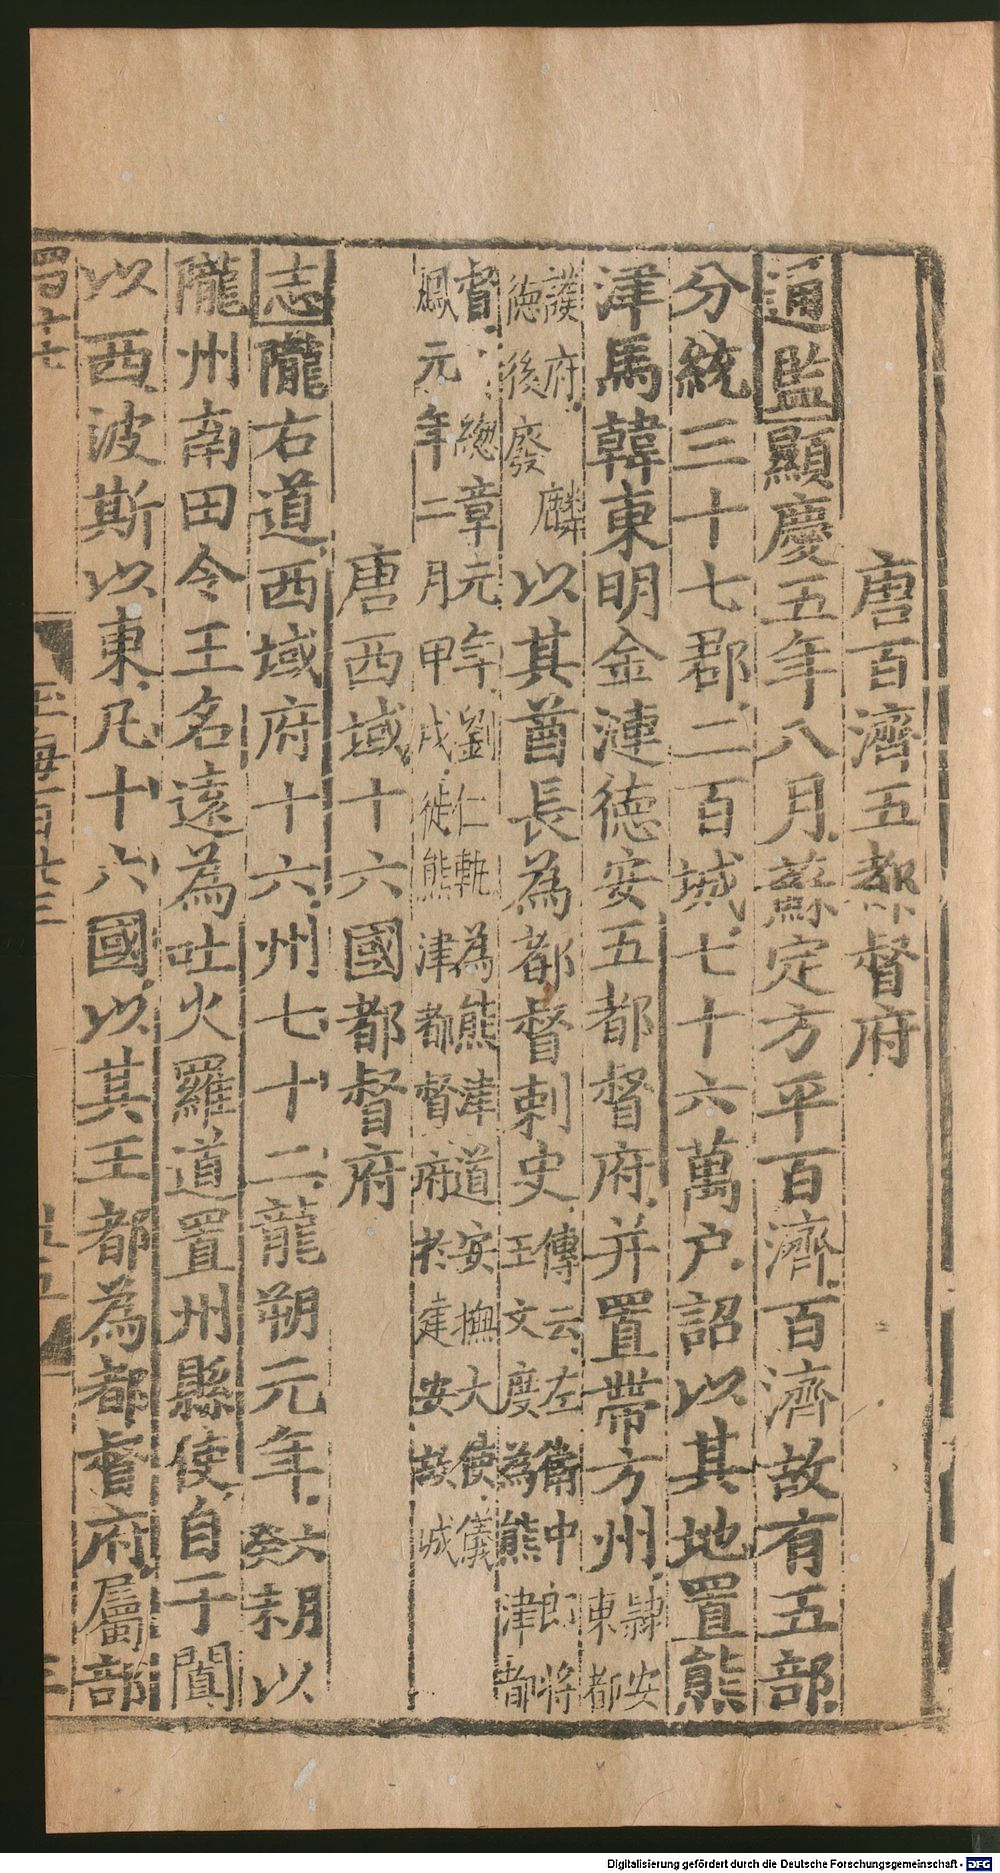 唐百濟五都督府
通監顯慶五年八月蘇定方平百濟百濟故有五部
分統三十七郡二百城七十六萬户詔以其地置熊
津馬韓東明金漣德安五都督府并置帶方州隸安東都
護府麟德後廢以其酋長為都督刺史傳云左衛中郎將王文度為熊津都
督總章元年劉仁軌為熊津道安撫大使儀鳳元年二月甲戌徙熊津都督府於建安故城
唐西域十六國都督府
志隴右道西域府十六州七十二龍朔元年癸六朔以
隴州南田令王名遠為吐火羅道置州縣使自于闐
以西波斯以東凡十六國以其王都為都督府屬部
玉海百卅三
Digitalisierung gefördert durch die Deutsche Forschungsgemeinschaft - DFG